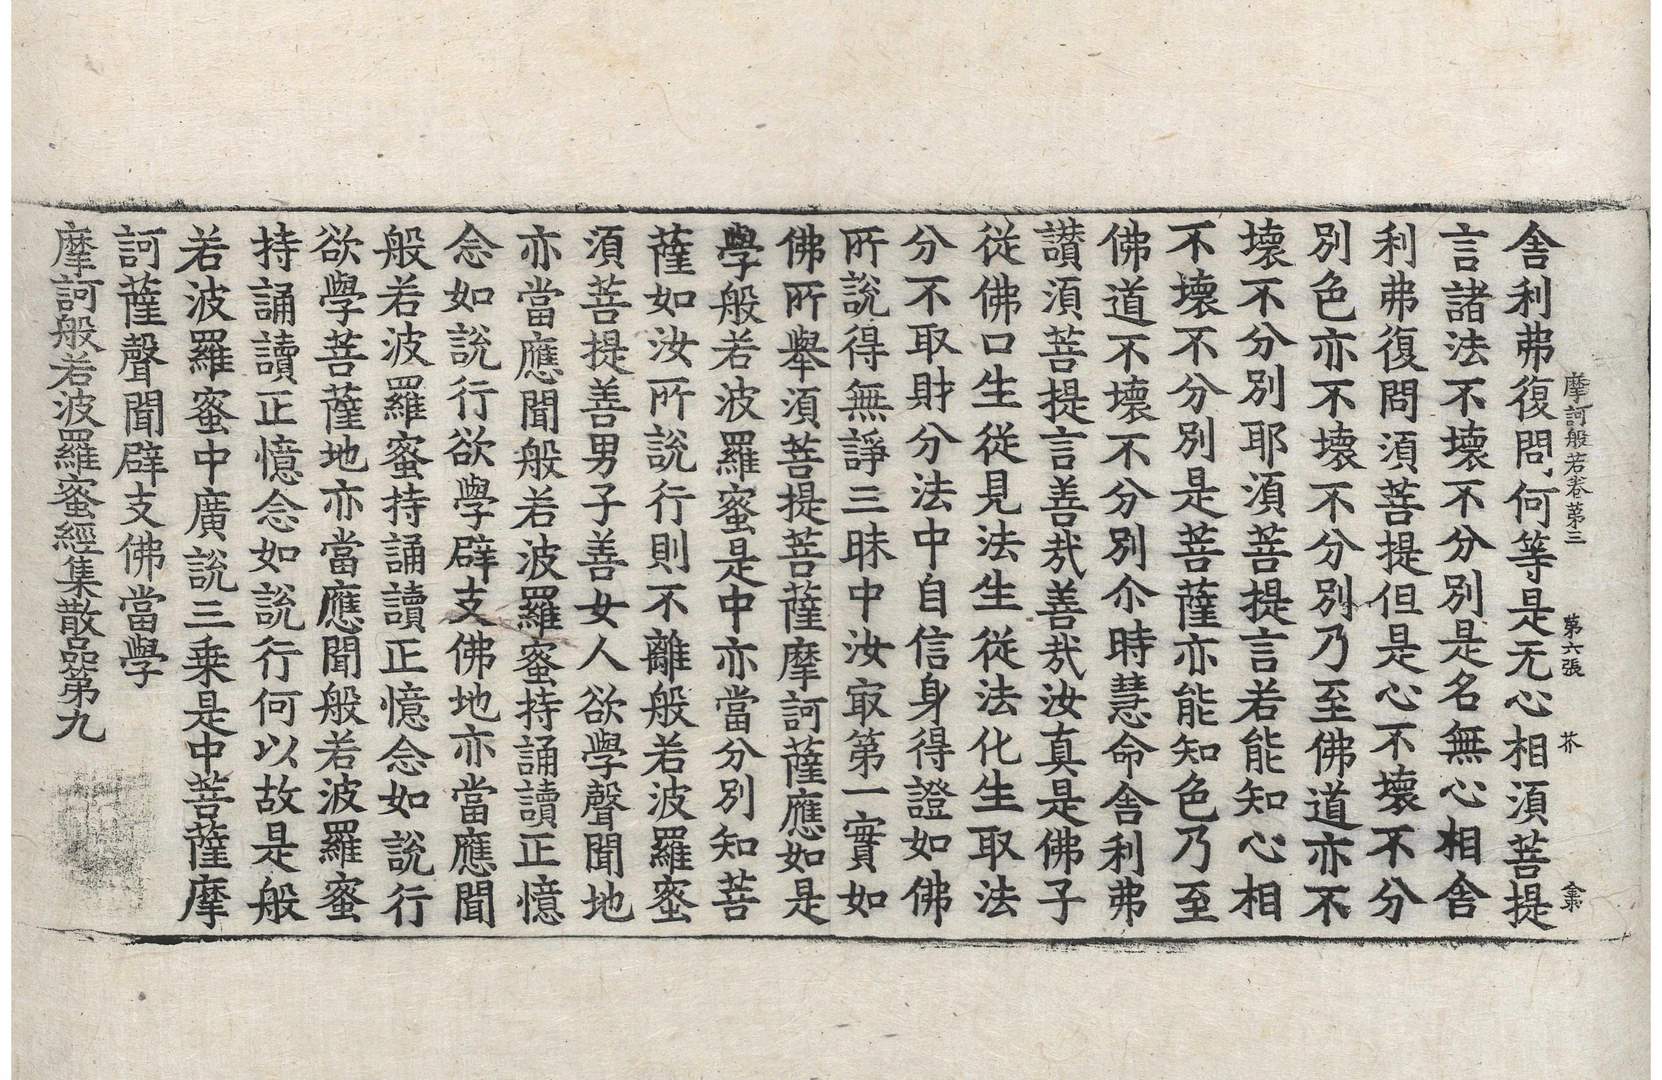 摩訶般若卷第三 第六張 芥
舍利弗復問何等是无心相須菩提
言諸法不壞不分別是名無心相舍
利弗復問須菩提但是心不壞不分
別色亦不壞不分別乃至佛道亦不
壞不分別耶須菩提言若能知心相
不壞不分別是菩薩亦能知色乃至
佛道不壞不分別尒時慧命舍利弗
讃須菩提言善㢤善㢤汝真是佛子
從佛口生從見法生從法化生取法
分不取財分法中自信身得證如佛
所說得無諍三昧中汝㝡第一實如
佛所舉須菩提菩薩摩訶薩應如是
學般若波羅蜜是中亦當分別知菩
薩如汝所說行則不離般若波羅蜜
須菩提善男子善女人欲學聲聞地
亦當應聞般若波羅蜜持誦讀正憶
念如說行欲學辟支佛地亦當應聞
般若波羅蜜持誦讀正憶念如說行
欲學菩薩地亦當應聞般若波羅蜜
持誦讀正憶念如說行何以故是般
若波羅蜜中廣說三乗是中菩薩摩
訶薩聲聞辟支佛當學
摩訶般若波羅蜜經集散品第九